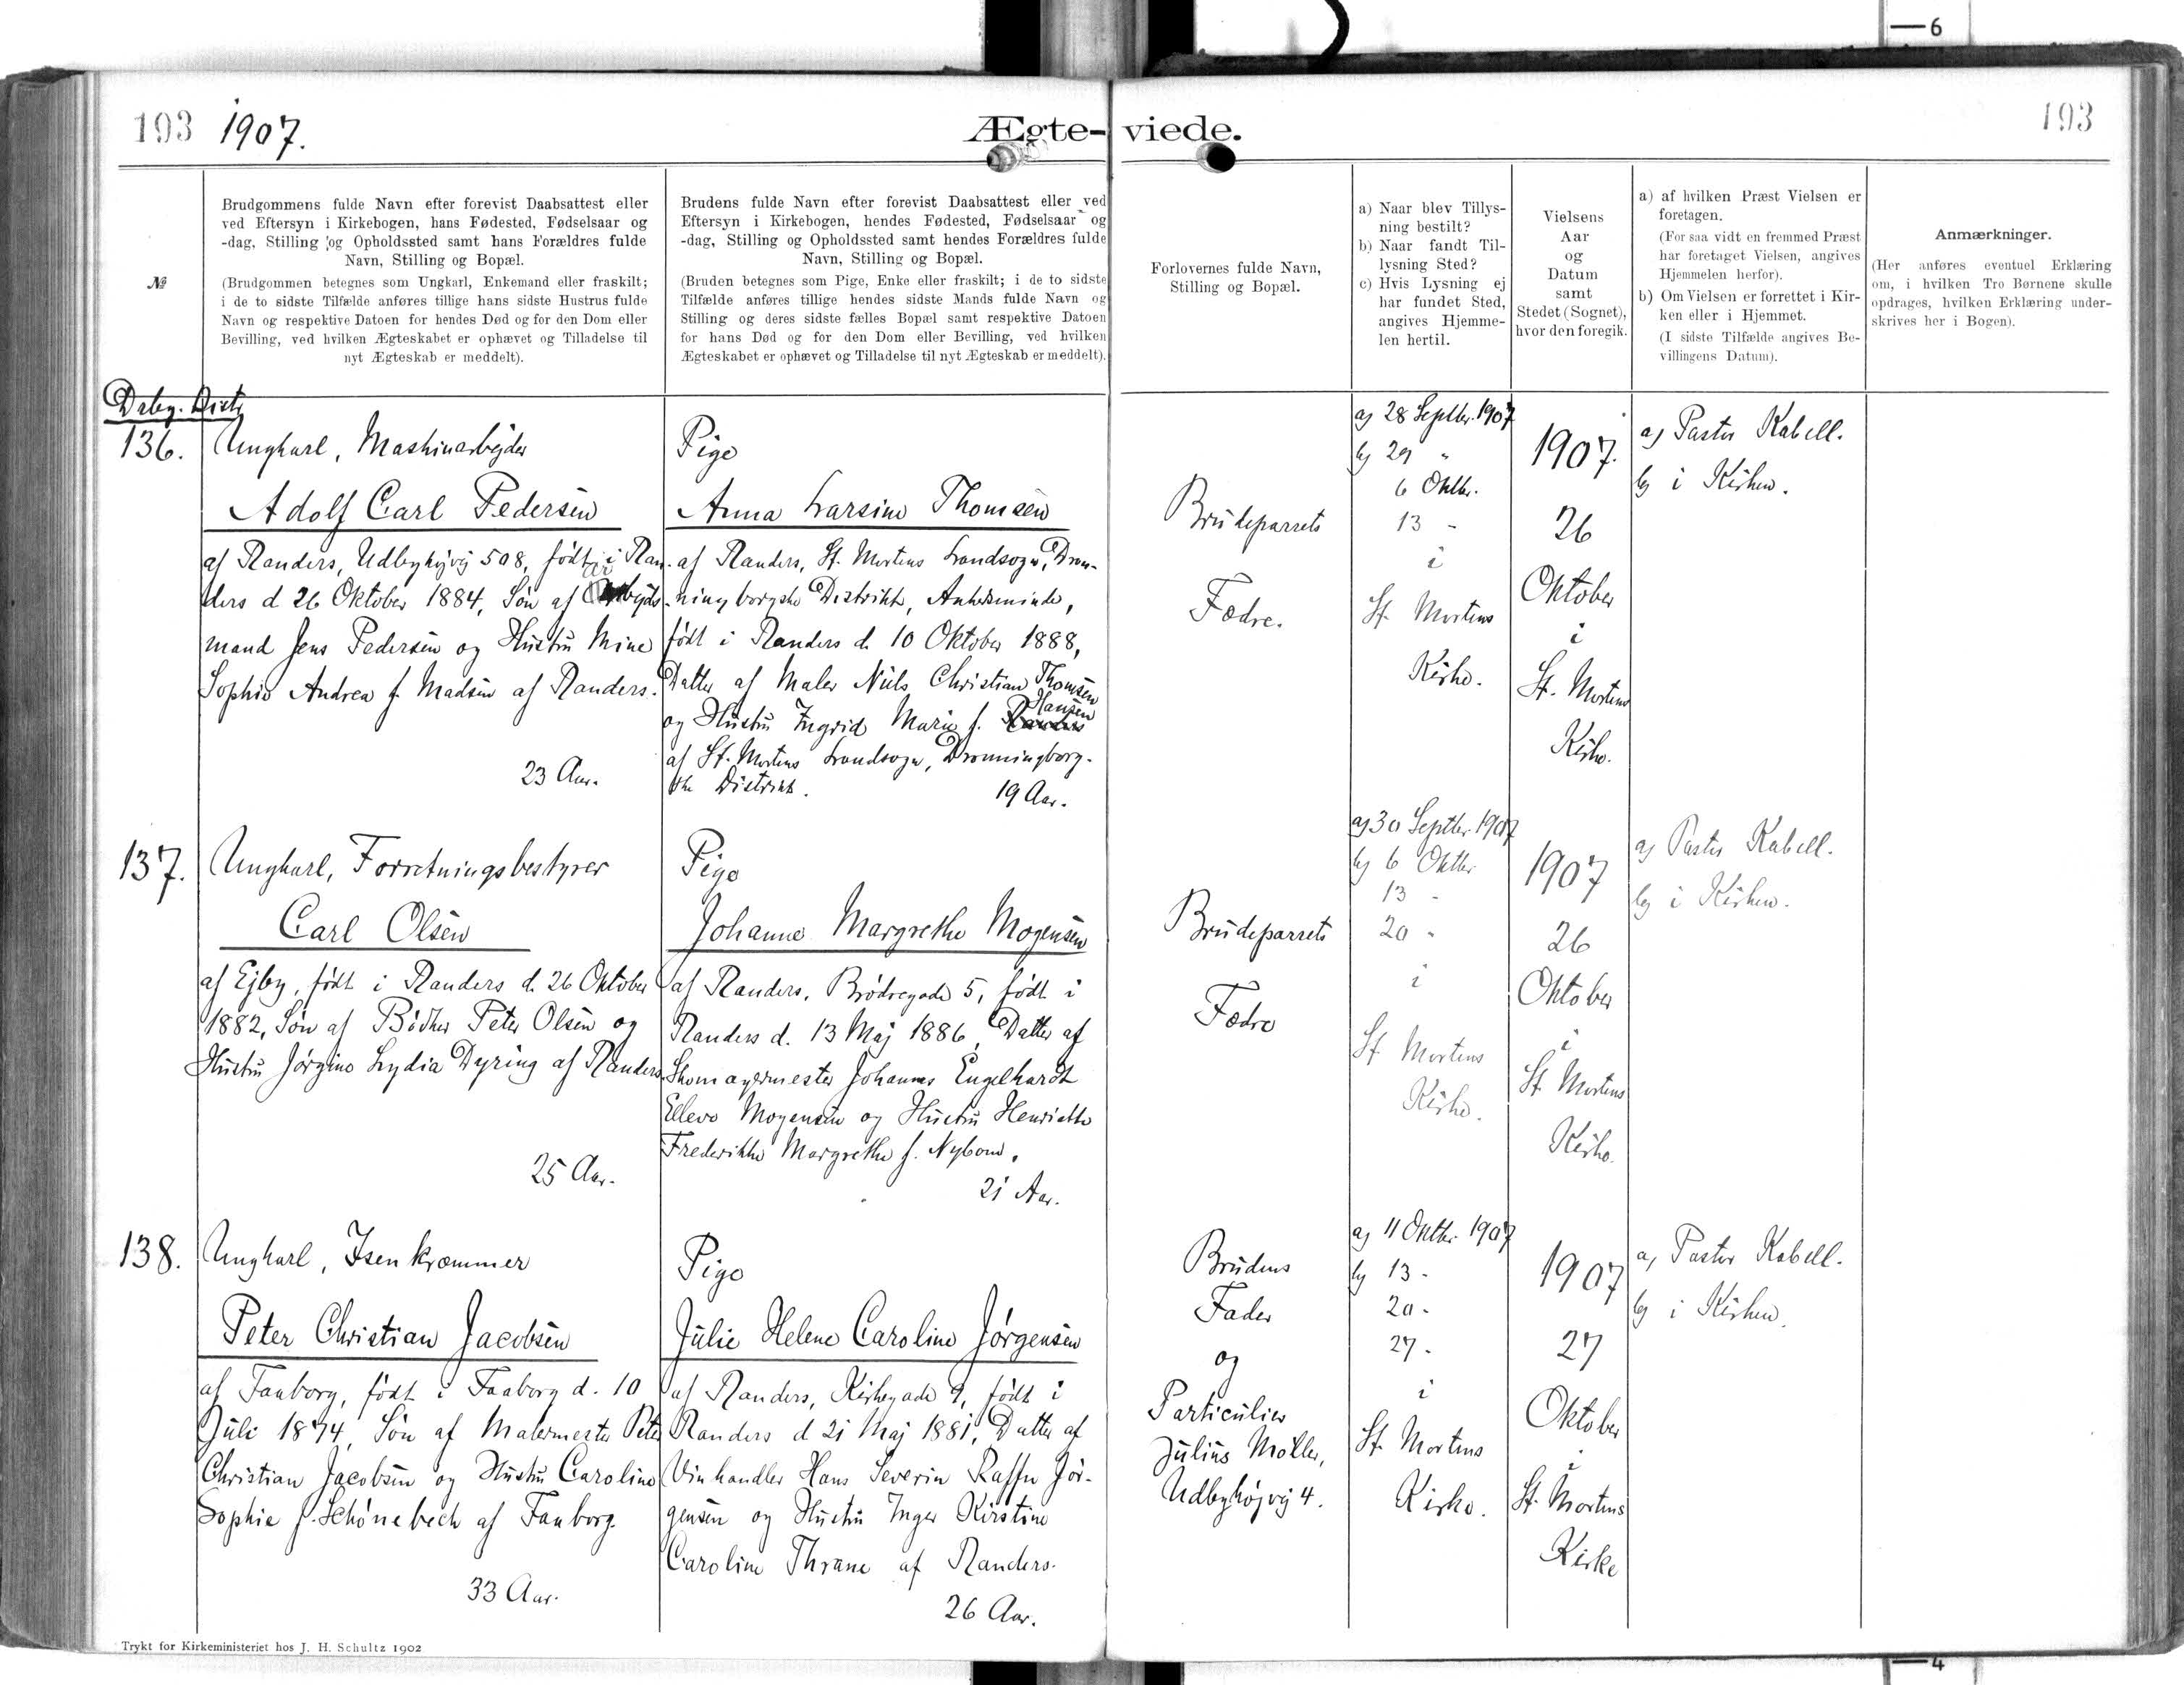 6
193 1907. Ægte- viede. 193
№
Brudgommens fulde Navn efter forevist Daabsattest eller
ved Eftersyn i Kirkebogen, hans Fødested, Fødselsaar og
-dag, Stilling og Opholdssted samt hans Forældres fulde
Navn, Stilling og Bopæl.
(Brudgommen betegnes som Ungkarl, Enkemand eller fraskilt;
i de to sidste Tilfælde anføres tillige hans sidste Hustrus fulde
Navn og respektive Datoen for hendes Død og for den Dom eller
Bevilling, ved hvilken Ægteskabet er ophævet og Tilladelse til
nyt Ægteskab er meddelt).
Brudens fulde Navn efter forevist Daabsattest eller ved
Eftersyn i Kirkebogen, hendes Fødested, Fødselsaar og
-dag, Stilling og Opholdssted samt hendes Forældres fulde
Navn, Stilling og Bopæl.
(Bruden betegnes som Pige, Enke eller fraskilt; i de to sidste
Tilfælde anføres tillige hendes sidste Mands fulde Navn og
Stilling og deres sidste fælles Bopæl samt respektive Datoen
for hans Død og for den Dom eller Bevilling, ved hvilken
Ægteskabet er ophævet og Tilladelse til nyt Ægteskab er meddelt).
Forlovernes fulde Navn,
Stilling og Bopæl.
a) Naar blev Tillys-
ning bestilt?
b) Naar fandt Til-
lysning Sted?
c) Hvis Lysning ej
har fundet Sted,
angives Hjemme-
len hertil.
Vielsens
Aar
og
Datum
samt
Stedet (Sognet),
hvor den foregik.
a) af hvilken Præst Vielsen er
foretagen.
(For saa vidt en fremmed Præst
har foretaget Vielsen, angives
Hjemmelen herfor).
b) Om Vielsen er forrettet i Kir-
ken eller i Hjemmet.
(I sidste Tilfælde angives Be-
villingens Datum).
Anmærkninger.
(Her anføres eventuel Erklæring
om, i hvilken Tro Børnene skulle
opdrages, hvilken Erklæring under-
skrives her i Bogen).
136.
Ungkarl, Maskinarbejder
Adolf Carl Pedersen
af Randers, Udbyhøjvej 508, født i Ran-
ders d 26 Oktober 1884, Søn af Arbejds-
mand Jens Pedersen og Hustru Mine
Sophie Andrea f. Madsen af Randers.
23 Aar.
Pige
Anna Larsine Thomsen
af Randers, St. Mortens Landsogn, Dron-
ningborgske Distrikt,
født i Randers d. 10 Oktober 1888,
Datter af Maler Niels Christian Thomsen
Hansen
og Hustru Ingrid Marie f. Randers
af St. Mortens Landsogn, Dronningborg-
ske Distrikt.
19 Aar.
Brudeparrets
Fædre.
a) 28 Septbr. 1907
b) 29 "
6 Oktbr.
13 -
i
St. Mortens
Kirke.
1907.
26
Oktober
i
St. Mortens
Kirke.
a) Pastor Kabell.
b) i Kirken.
137.
Ungkarl, Forretningsbestyrer
Carl Olsen
af Ejby, født i Randers d. 26 Oktober
1882, Søn af Bødker Peter Olsen og
Hustru Jørgine Lydia Dyring af Randers.
25 Aar.
Pige
Johanne Margrethe Mogensen
af Randers, Brødregade 5, født i
Randers d. 13 Maj 1886, Datter af
Skomagermester Johannes Engelhardt
Elevs Mogensen og Hustru Henriette
Frederikke Margrethe f. Nybom.
21 Aar.
Brudeparrets
Fædre
a) 30 Septbr. 1907
b) 6 Oktbr
13 -
20 -
i
St Mortens
Kirke.
1907
26
Oktober
i
St. Mortens
Kirke.
a) Pastor Kabell.
b) i Kirken.
138.
Ungkarl, Isenkræmmer
Peter Christian Jacobsen
af Faaborg, født i Faaborg d. 10
Juli 1874, Søn af Malermester Peter
Christian Jacobsen og Hustru Caroline
Sophie f. Schønebech af Faaborg.
33 Aar.
Pige
Julie Helene Caroline Jørgensen
af Randers, Kirkegade 9, født i
Randers d 21 Maj 1881, Datter af
Vinhandler Hans Severin Raffn Jør-
gensen og Hustru Inger Kirstine
Caroline Thrane af Randers.
26 Aar.
Brudens
Fader
og
Particulier
Julius Møller,
Udbyhøjvej 4.
a) 11 Oktbr. 1907
b) 13 -
20 -
27 -
i
St. Mortens
Kirke.
1907
27
Oktober
i
St. Mortens
Kirke
a) Pastor Kabell.
b) i Kirken.
Trykt for Kirkeministeriet hos J. H. Schultz 1902
4